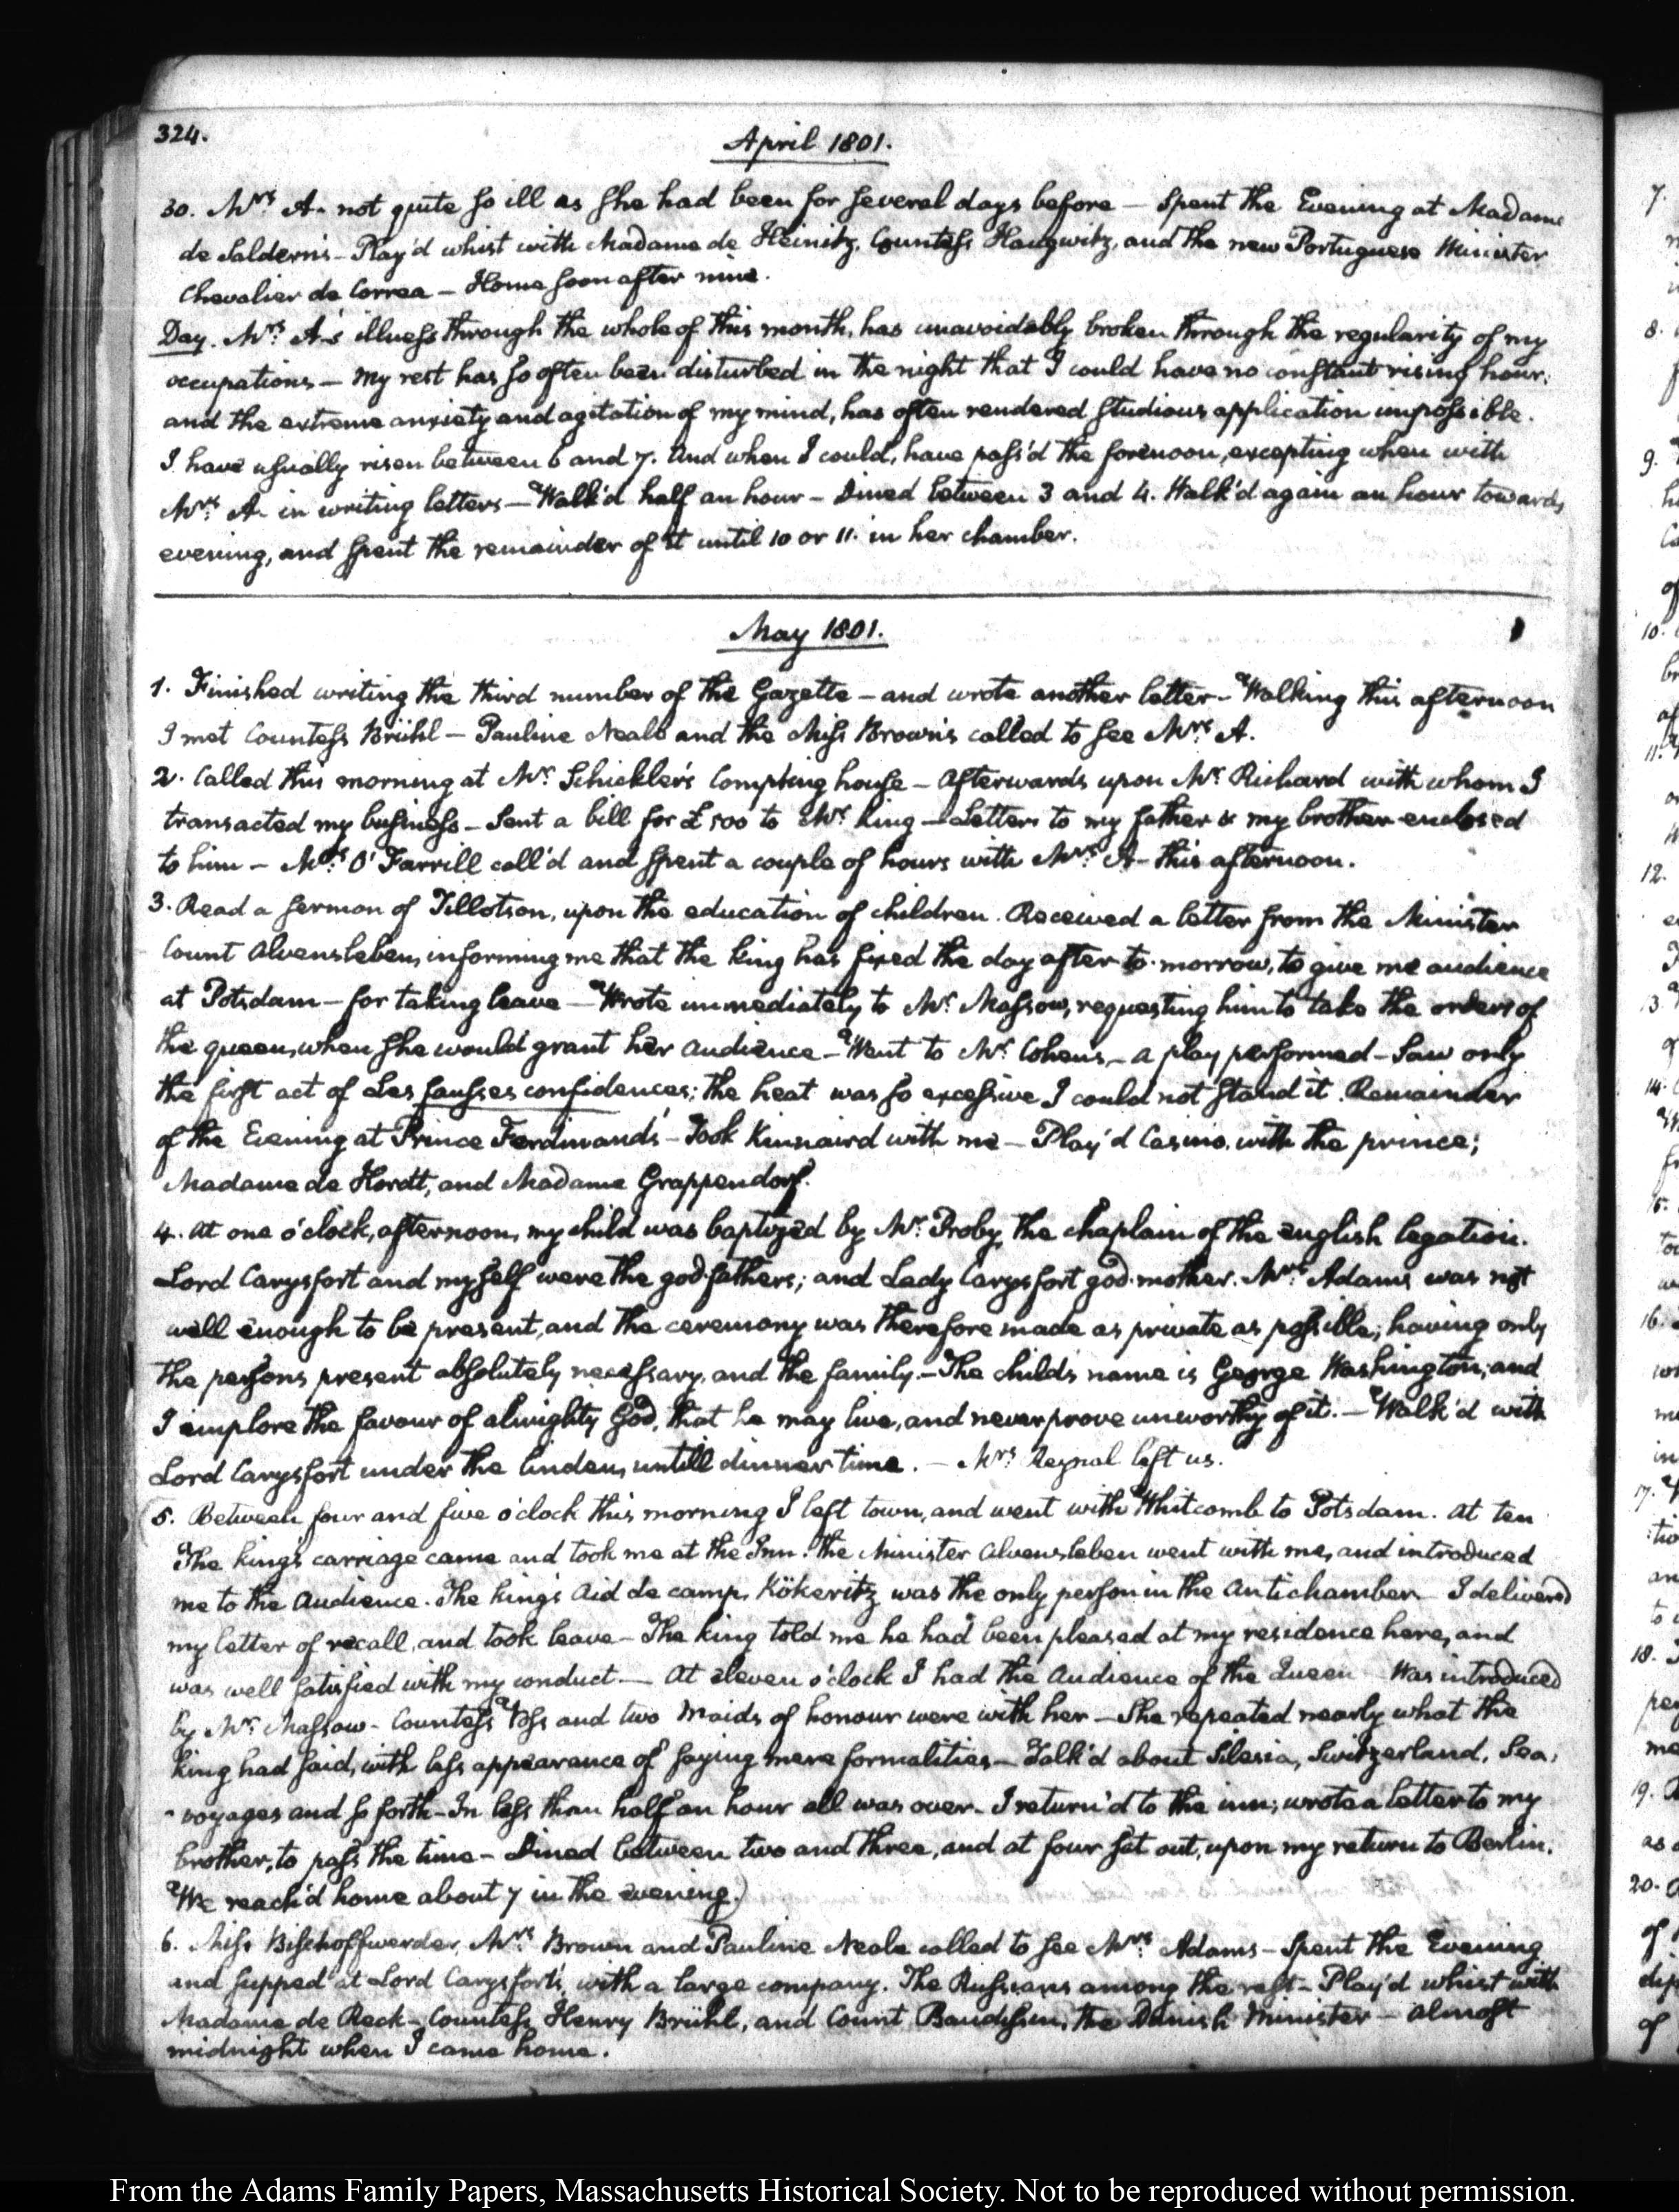 324.
April 1801.
30. Mrs. A. not quite so ill as she had been for several days before — Spent the Evening at Madame
de Saldern's — Play'd whist with Madame de Heinitz, Countess Haugwitz, and the new Portuguese Minister
Chevalier de Correa — Home soon after nine.
Day. Mrs. A's illness through the whole of this month, has unavoidably broken through the regularity of my
occupations — My rest has so often been disturbed in the night that I could have no constant rising hour:
and the extreme anxiety and agitation of my mind, has often rendered studious application impossible.
I have usually risen between 6 and 7. And when I could, have pass'd the forenoon, excepting when with
Mrs. A. in writing letters — Walk'd half an hour — Dined between 3 and 4. Walk'd again an hour towards
evening, and spent the remainder of it until 10 or 11. in her chamber.
May 1801.
1. Finished writing the third number of the Gazette — and wrote another letter — Walking this afternoon
I met Countess Brühl — Pauline Neale and the Miss Brown's called to see Mrs. A.
2. Called this morning at Mr. Schickler's Compting house — Afterwards upon Mr. Richard with whom I
transacted my business — Sent a bill for £500 to Mr. King — Letters to my father & my brother enclosed
to him — Mrs. O'Farrill call'd and spent a couple of hours with Mrs. A — this afternoon.
3. Read a sermon of Tillotson, upon the education of children. Received a letter from the Minister
Count Alvensleben, informing me that the King has fixed the day after to-morrow, to give me audience
at Potsdam — for taking leave — Wrote immediately to Mr. Massow, requesting him to take the orders of
the queen, when she would grant her audience — Went to Mr. Cohens — a play performed — Saw only
the first act of Les fausses confidences; the heat was so excessive I could not stand it. Remainder
of the Evening at Prince Ferdinand's — Took Kinnaird with me — Play'd Casino with the prince;
Madame de Hordt, and Madame Grappendorf.
4. At one o'clock, afternoon, my child was baptized by Mr. Proby, the chaplain of the english legation.
Lord Carysfort and myself were the god-fathers; and Lady Carysfort god-mother. Mrs. Adams was not
well enough to be present, and the ceremony was therefore made as private as possible; having only
the persons present absolutely necessary, and the family. — The child's name is George Washington; and
I implore the favour of almighty God, that he may live, and never prove unworthy of it. — Walk'd with
Lord Carysfort under the lindens, untill dinner time. — Mrs. Reynal left us.
5. Between four and five o'clock this morning I left town, and went with Whitcomb to Potsdam. At ten
The king's carriage came and took me at the Inn. The Minister Alvensleben went with me, and introduced
me to the Audience. The king's Aid de camp, Kökeritz was the only person in the Antichamber — I delivered
my letter of recall, and took leave — The king told me he had been pleased at my residence here, and
was well satisfied with my conduct — At eleven o'clock I had the Audience of the Queen — Was introduced
by Mr. Massow — Countess Voss and two Maids of honour were with her — She repeated nearly what the
King had said, with less appearance of saying mere formalities — Talk'd about Silesia, Switzerland, Sea-
-voyages and so forth — In less than half an hour all was over — I return'd to the inn; wrote a letter to my
brother, to pass the time — Dined between two and three, and at four set out, upon my return to Berlin.
We reach'd home about 7 in the evening.)
6. Miss Bischoffwerder, Mrs. Brown and Pauline Neale called to see Mrs. Adams — Spent the Evening
and supped at Lord Carysfort's, with a large company. The Russians among the rest — Play'd whist with
Madame de Reck — Countess Henry Brühl, and Count Baudissin, the Danish Minister — almost
midnight when I came home.
From the Adams Family Papers, Massachusetts Historical Society. Not to be reproduced without permission.